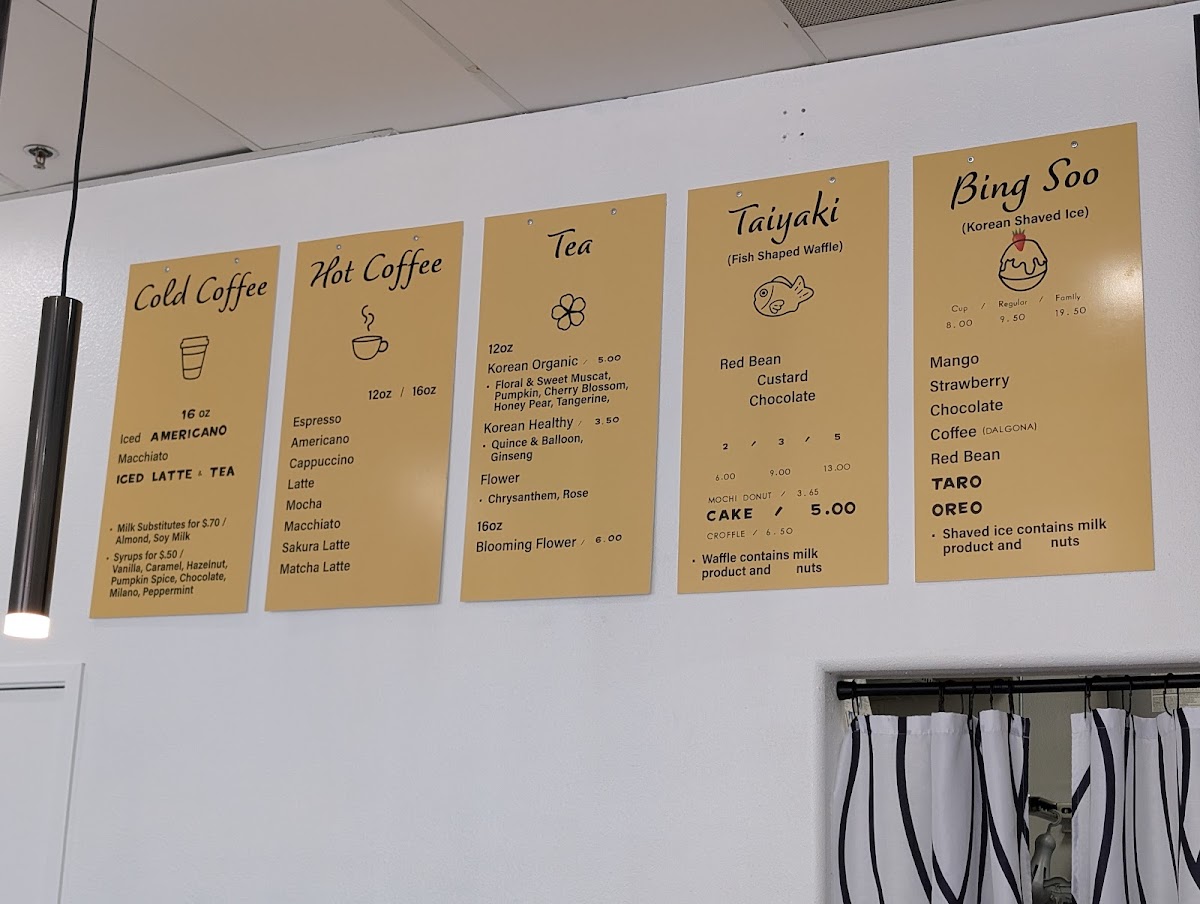 Cold Coffee
16 oz
Iced AMERICANO
Macchiato
ICED LATTE & TEA
• Milk Substitutes for $.70 /
Almond, Soy Milk
• Syrups for $.50 /
Vanilla, Caramel, Hazelnut,
Pumpkin Spice, Chocolate,
Milano, Peppermint
Hot Coffee
12oz / 16oz
Espresso
Americano
Cappuccino
Latte
Mocha
Macchiato
Sakura Latte
Matcha Latte
Tea
12oz
Korean Organic / 5.00
• Floral & Sweet Muscat,
Pumpkin, Cherry Blossom,
Honey Pear, Tangerine,
Korean Healthy / 3.50
• Quince & Balloon,
Ginseng
Flower
• Chrysanthem, Rose
16oz
Blooming Flower / 6.00
Taiyaki
(Fish Shaped Waffle)
Red Bean
Custard
Chocolate
2 / 3 / 5
6.00 9.00 13.00
MOCHI DONUT / 3.65
CAKE / 5.00
CROFFLE / 6.50
• Waffle contains milk
product and nuts
Bing Soo
(Korean Shaved Ice)
Cup / Regular / Family
8.00 9.50 19.50
Mango
Strawberry
Chocolate
Coffee (DALGONA)
Red Bean
TARO
OREO
• Shaved ice contains milk
product and nuts